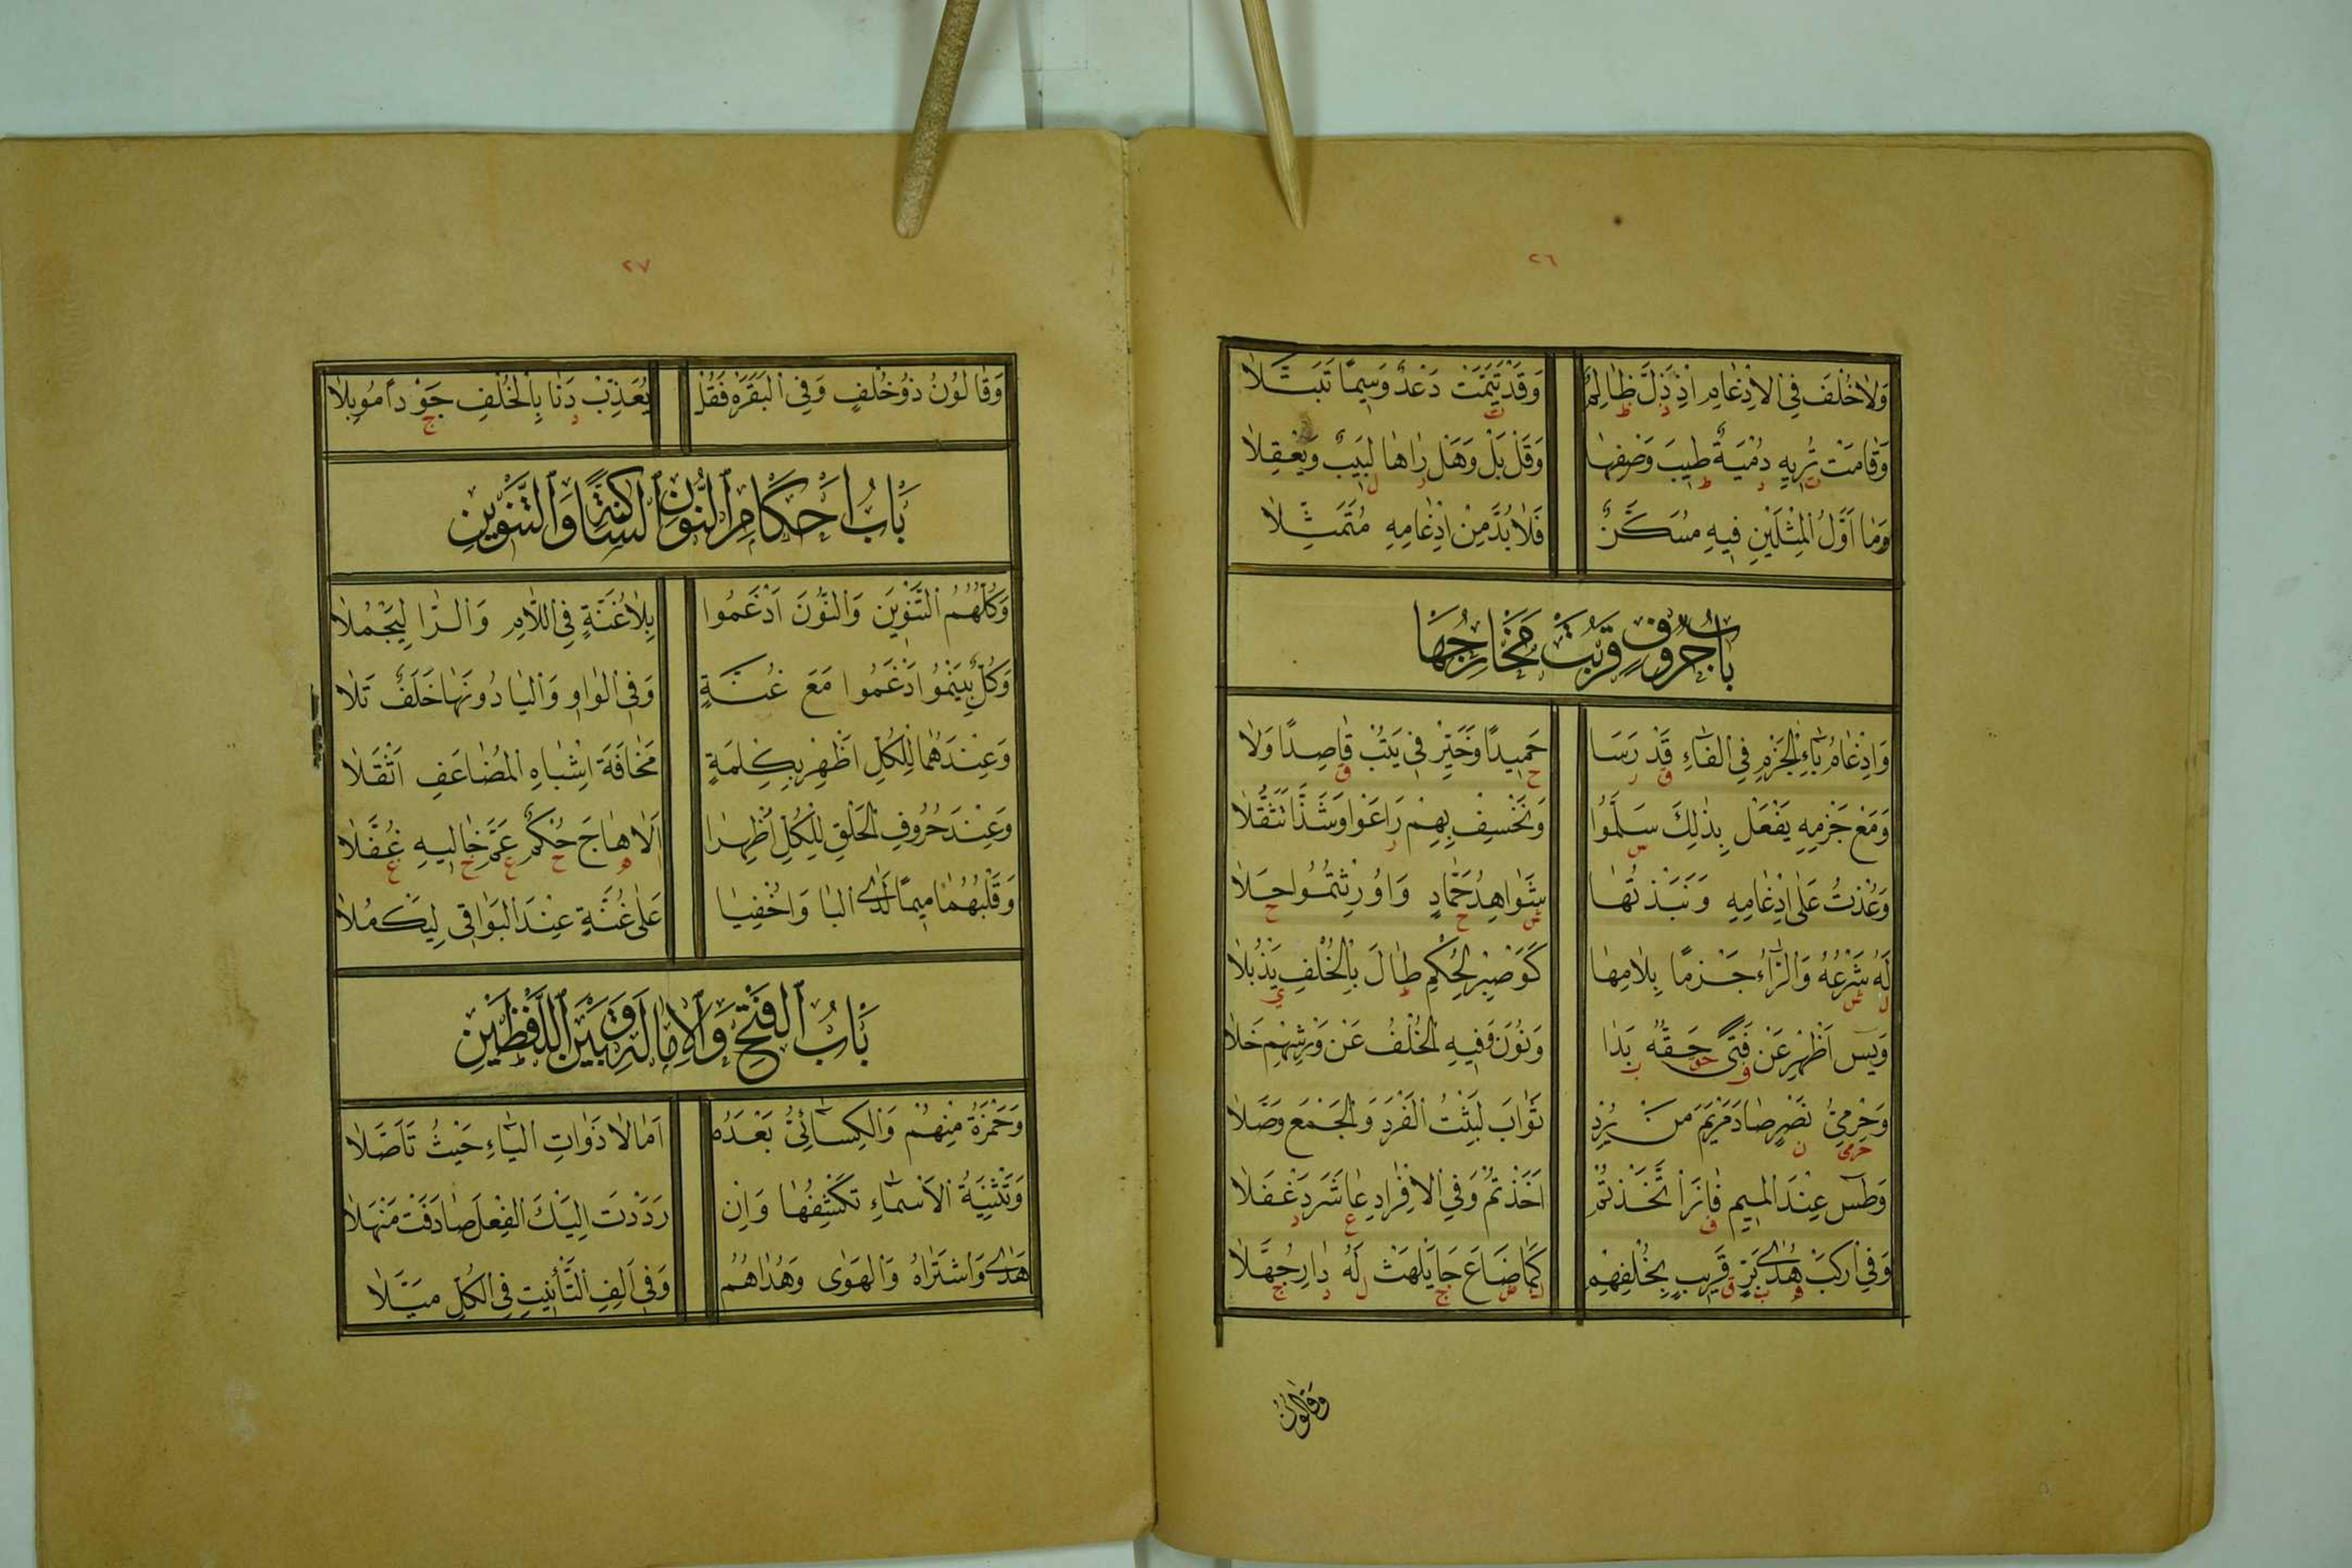 ٢٦
وَلَاخُلْفَ فِي الْاِدْغَامِ اِذْ ذَلَّ ظَالِمٌ وَقَدْ تَيَّمَتْ دَعْدٌ وَسِيمًا تَبَتَّلَا
وَقَامَتْ تُرِيهِ دُمْيَةٌ طِيبَ وَصْفِهَا وَقُلْ بَلْ وَهَلْ رَاهَا لَبِيبٌ وَيَعْقِلَا
وَمَا اَوَّلُ الْمِثْلَيْنِ فِيهِ مُسَكَّنٌ فَلَا بُدَّ مِنْ اِدْغَامِهِ مُتَمَثِّلَا
بَابُ حُرُوفٍ قَرُبَتْ مَخَارِجُهَا
وَاِدْغَامُ بَاءِ الْجَزْمِ فِي الْفَاءِ قَدْ رَسَا حَمِيدًا وَخَيِّرْ فِي يَتُبْ قَاصِدًا وَلَا
وَمَعْ جَزْمِهِ يَفْعَلْ بِذٰلِكَ سَلَّمُوا وَنَخْسِفْ بِهِمْ رَاعَوْا وَشَذَّا تَثَقُّلَا
وَعُذْتُ عَلٰى اِدْغَامِهِ وَنَبَذْتُهَا شَوَاهِدُ حَمَّادٍ وَاُورِثْتُمُوا حَلَا
لَهُ شَرْعُهُ وَالرَّاءُ جَزْمًا بِلَامِهَا كَوَاصْبِرْ لِحُكْمِ طَالَ بِالْخُلْفِ يَذْبُلَا
وَيٰسٓ اَظْهِرْ عَنْ فَتًى حَقُّهُ بَدَا وَنُونَ وَفِيهِ الْخُلْفُ عَنْ وَرْشِهِمْ خَلَا
وَحِرْمِيُّ نَصْرٍ صَادَ مَرْيَمَ مَنْ يُرِدْ ثَوَابَ لَبِثْتُ الْفَرْدَ وَالْجَمْعَ وَصَّلَا
وَطٰسٓ عِنْدَ الْمِيمِ فَازَ اتَّخَذْتُمْ اَخَذْتُمْ وَفِي الْاِفْرَادِ عَاشَرَ دَغْفَلَا
وَفِي ارْكَبْ هُدٰى بَرٍّ قَرِيبٍ بِخُلْفِهِمْ كَمَا ضَاعَ جَا يَلْهَثْ لَهُ دَارِ جُهَّلَا
وَقَالُونُ
٢٧
وَقَالُونُ ذُو خُلْفٍ وَفِي الْبَقَرَهْ فَقُلْ يُعَذِّبْ دَنَا بِالْخُلْفِ جَوْدًا مُوبِلَا
بَابُ اَحْكَامِ النُّونِ السَّاكِنَةِ وَالتَّنْوِينِ
وَكُلُّهُمُ التَّنْوِينَ وَالنُّونَ اَدْغَمُوا بِلَا غُنَّةٍ فِي اللَّامِ وَالرَّا لِيَجْمُلَا
وَكُلٌّ بِيَنْمُوا اَدْغَمُوا مَعَ غُنَّةٍ وَفِي الْوَاوِ وَالْيَا دُونَهَا خَلَفٌ تَلَا
وَعِنْدَهُمَا لِلْكُلِّ اَظْهِرْ بِكِلْمَةٍ مَخَافَةَ اِشْبَاهِ الْمُضَاعَفِ اَثْقَلَا
وَعِنْدَ حُرُوفِ الْحَلْقِ لِلْكُلِّ اُظْهِرَا اَلَا هَاجَ حُكْمٌ عَمَّ خَالِيهِ غُفَّلَا
وَقَلْبُهُمَا مِيمًا لَدَى الْبَا وَاُخْفِيَا عَلٰى غُنَّةٍ عِنْدَ الْبَوَاقِي لِيَكْمُلَا
بَابُ الْفَتْحِ وَالْاِمَالَةِ وَبَيْنَ اللَّفْظَيْنِ
وَحَمْزَةُ مِنْهُمْ وَالْكِسَائِيُّ بَعْدَهُ اَمَالَا ذَوَاتِ الْيَاءِ حَيْثُ تَاَصَّلَا
وَتَثْنِيَةُ الْاَسْمَاءِ تَكْشِفُهَا وَاِنْ رَدَدْتَ اِلَيْكَ الْفِعْلَ صَادَفْتَ مَنْهَلَا
هَدٰى وَاشْتَرَاهُ وَالْهَوٰى وَهُدَاهُمُ وَفِي اَلِفِ التَّأْنِيثِ فِي الْكُلِّ مَيَّلَا